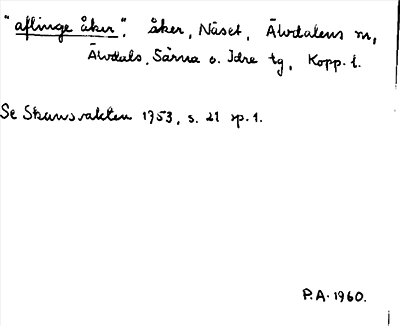 "aflinge åker". åker, Näset, Älvdalens m,
Älvdals, Särna o. Idre tg, Kopp. l.
Se Skansvakten 1953, s. 21 sp. 1.
P.A. 1960.